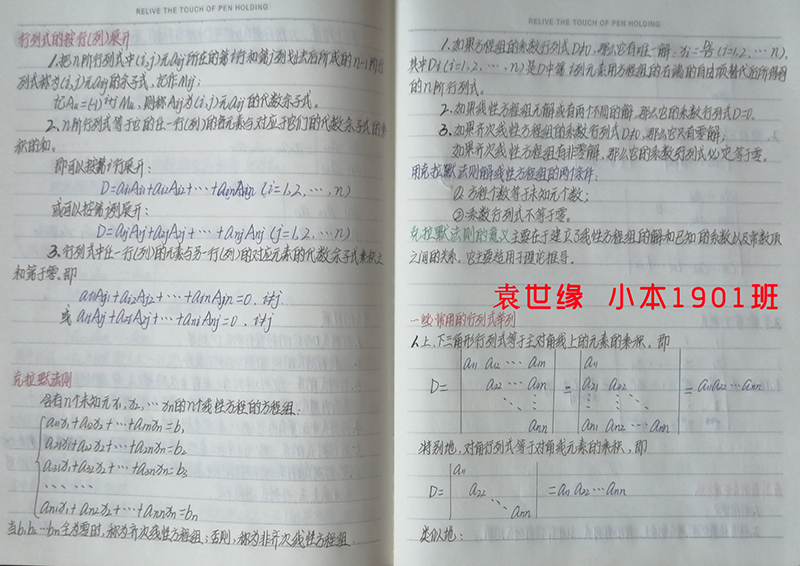 RELIVE THE TOUCH OF PEN HOLDING
行列式的按行(列)展开
1.把n阶行列式中(i,j)元aij所在的第i行和第j列划去后所成的n-1阶行
列式称为(i,j)元aij的余子式,记作Mij;
记Aij=(-1)i+jMij,则称Aij为(i,j)元aij的代数余子式。
2.n阶行列式等于它的任一行(列)的各元素与对应于它们的代数余子式的乘
积的和。
即可以按第i行展开:
D=ai1Ai1+ai2Ai2+…+ainAin (i=1,2,…,n)
或可以按第j列展开:
D=a1jA1j+a2jA2j+…+anjAnj (j=1,2,…,n)
3.行列式中任一行(列)的元素与另一行(列)的对应元素的代数余子式乘积之
和等于零。即
ai1Aj1+ai2Aj2+…+ainAjn=0,i≠j
或a1iA1j+a2iA2j+…+aniAnj=0,i≠j
克拉默法则
含有n个未知元x1,x2,…xn的n个线性方程的方程组:
a11x1+a12x2+…+a1nxn=b1
a21x1+a22x2+…+a2nxn=b2
a31x1+a32x2+…+a3nxn=b3
… … …
an1x1+an2x2+…+annxn=bn
当b1,b2…bn全为零时,称为齐次线性方程组;否则,称为非齐次线性方程组.
RELIVE THE TOUCH OF PEN HOLDING
1.如果方程组的系数行列式D≠0,那么它有唯一解:xi=Di/D(i=1,2,…,n),
其中Di(i=1,2,…,n)是D中第i列元素用方程组的右端的自由项替代后所得到
的n阶行列式。
2.如果线性方程组无解或有两个不同的解,那么它的系数行列式D=0.
3.如果齐次线性方程组的系数行列式D≠0,那么它只有零解;
如果齐次线性方程组有非零解,那么它的系数行列式必定等于零。
用克拉默法则解线性方程组的两个条件:
①方程个数等于未知元个数;
②系数行列式不等于零。
克拉默法则的意义主要在于建立了线性方程组的解和已知的系数以及常数项
之间的关系。它主要适用于理论推导。
袁世缘 小本1901班
一些常用的行列式举列
1.上、下三角形行列式等于主对角线上的元素的乘积。即
a11 a12 … a1n a11
D= a22 … a2n = a21 a22 =a11a22…ann
⋱ ⋮ ⋮ ⋮ ⋱
ann an1 an2 … ann
特别地,对角行列式等于对角线元素的乘积,即
a11
D= a22 =a11 a22…ann
⋱
ann
类似地: